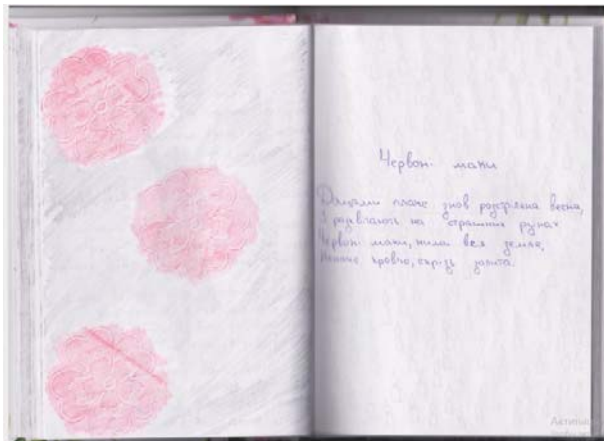 Червоні маки
Дощами плаче знов розстріляна весна,
І розквітають на страшних руїнах
Червоні маки, ними вся земля,
Неначе кров'ю, скрізь залита.
Активац